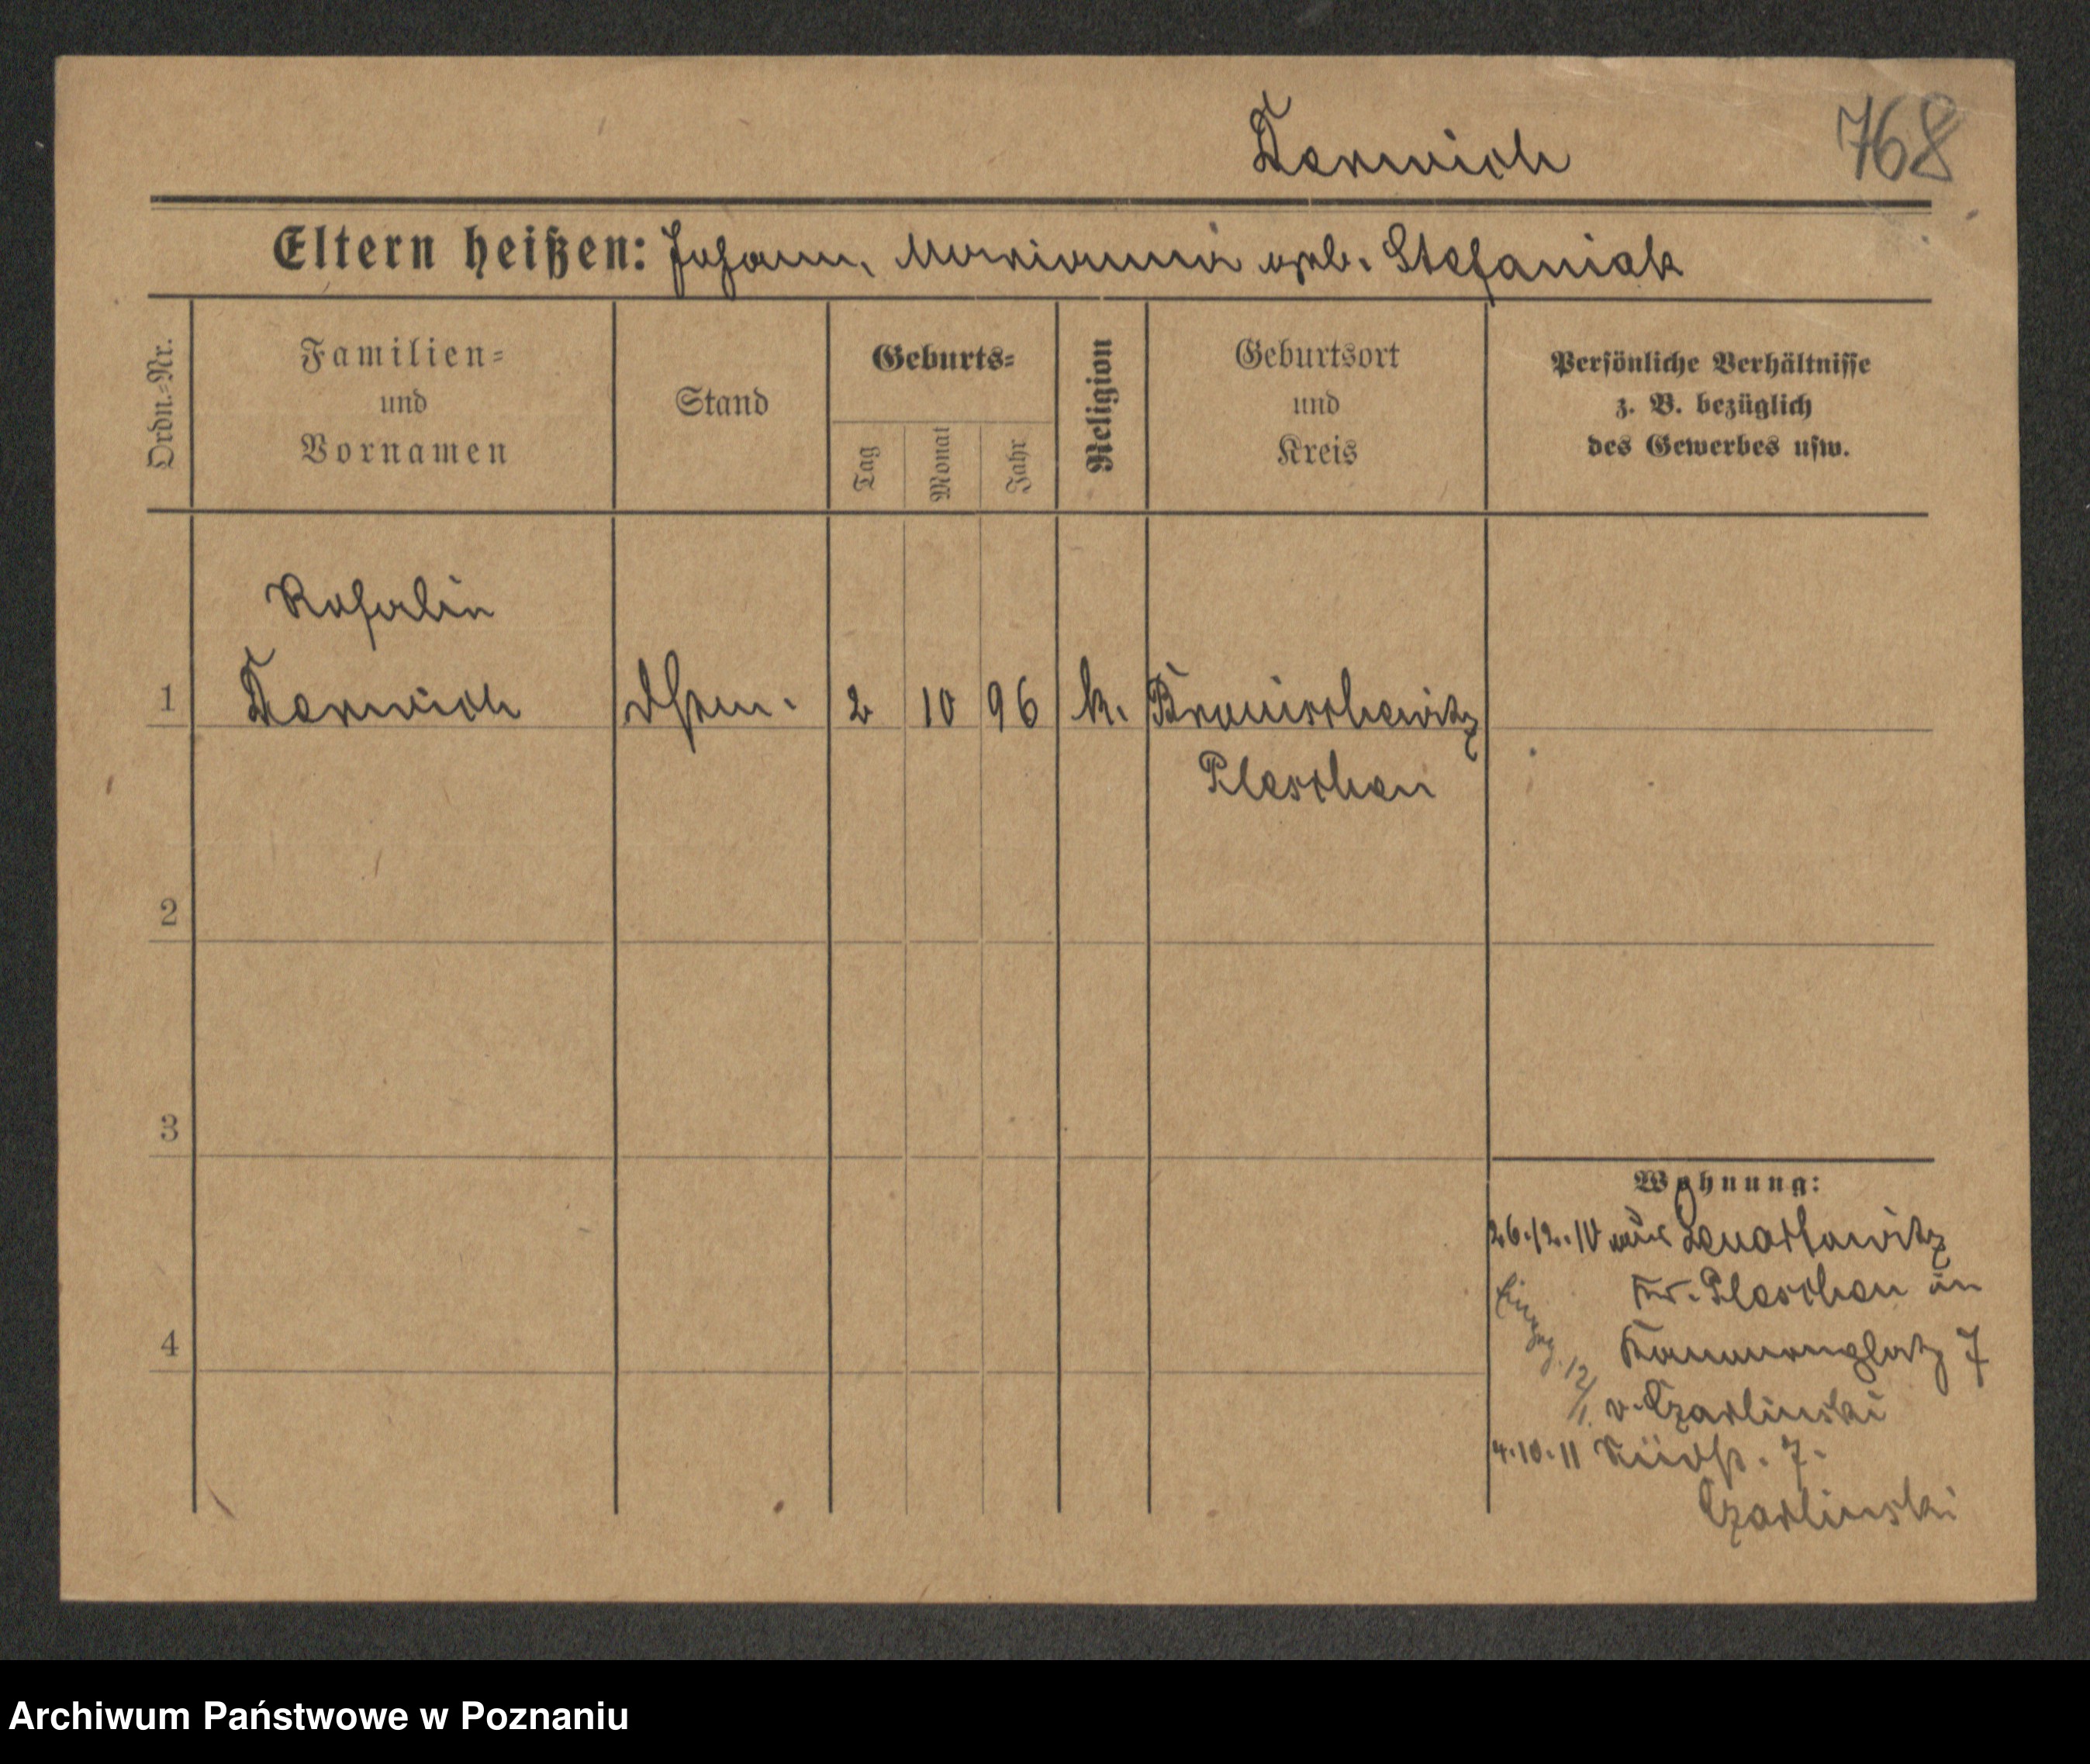 Derwich 768
Eltern heißen: Johann, Marianna geb. Stefaniak
Ordn.-Nr.
Familien-
und
Vornamen
Stand
Geburts-
Tag
Monat
Jahr
Religion
Geburtsort
und
Kreis
Persönliche Verhältnisse
z. B. bezüglich
des Gewerbes usw.
Rosalie
1 Derwich 2 10 96 k. Bronischewitz
Pleschen
2
3
4
Wohnung:
26.12.10 aus
Kr. Pleschen in
7
12/1. v. Czarlinski
4.10.11 7.
Czarlinski
Archiwum Państwowe w Poznaniu